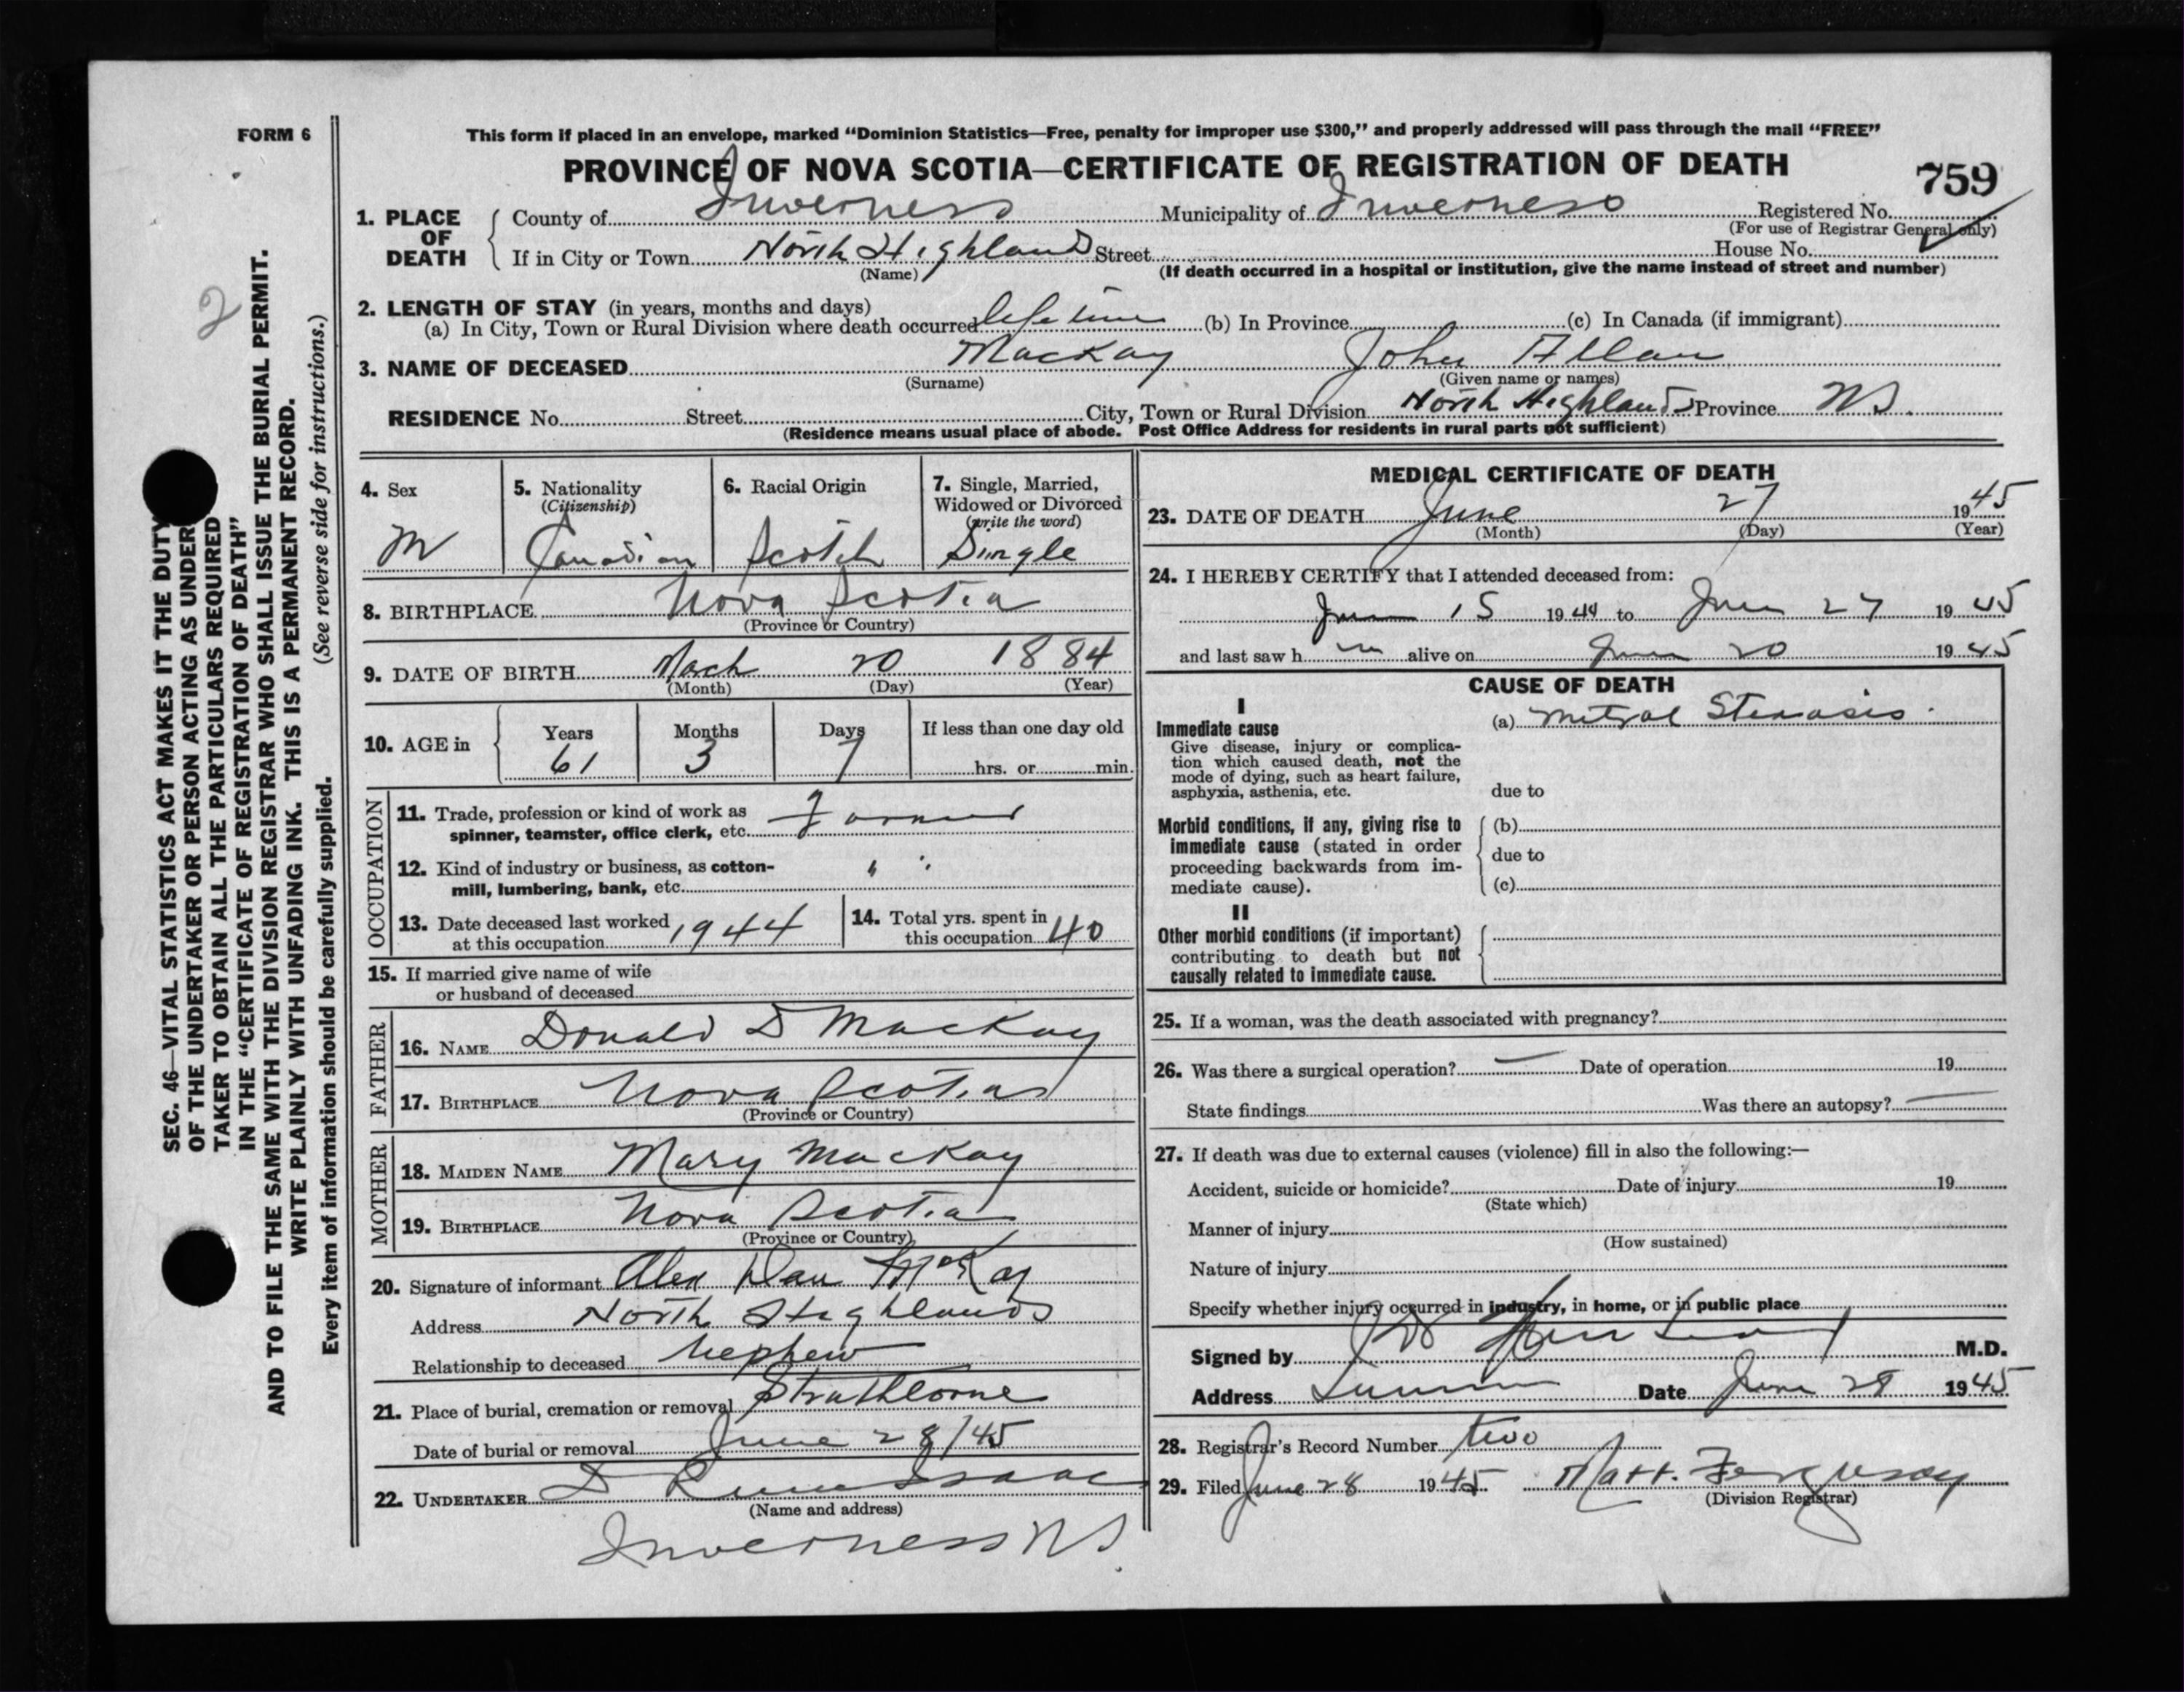 FORM 6
This form if placed in an envelope, marked “Dominion Statistics—Free, penalty for improper use $300,” and properly addressed will pass through the mail “FREE”
PROVINCE OF NOVA SCOTIA—CERTIFICATE OF REGISTRATION OF DEATH
759
1. PLACE OF DEATH
County of Inverness Municipality of Inverness Registered No.
(For use of Registrar General only)
If in City or Town North Highlands Street House No.
(Name) (If death occurred in a hospital or institution, give the name instead of street and number)
2. LENGTH OF STAY (in years, months and days)
(a) In City, Town or Rural Division where death occurred life time (b) In Province (c) In Canada (if immigrant)
3. NAME OF DECEASED MacKay John Allan
(Surname) (Given name or names)
RESIDENCE No. Street City, Town or Rural Division North Highlands Province NS.
(Residence means usual place of abode. Post Office Address for residents in rural parts not sufficient)
4. Sex
M
5. Nationality
(Citizenship)
Canadian
6. Racial Origin
Scotch
7. Single, Married,
Widowed or Divorced
(write the word)
Single
8. BIRTHPLACE Nova Scotia
(Province or Country)
9. DATE OF BIRTH Mach 20 1884
(Month) (Day) (Year)
10. AGE in
Years Months Days If less than one day old
61 3 7 hrs. or min.
OCCUPATION
11. Trade, profession or kind of work as
spinner, teamster, office clerk, etc. Farmer
12. Kind of industry or business, as cotton-
mill, lumbering, bank, etc. " "
13. Date deceased last worked
at this occupation 1944
14. Total yrs. spent in
this occupation 40
15. If married give name of wife
or husband of deceased
FATHER
16. NAME Donald D MacKay
17. BIRTHPLACE Nova Scotia
(Province or Country)
MOTHER
18. MAIDEN NAME Mary MacKay
19. BIRTHPLACE Nova Scotia
(Province or Country)
20. Signature of informant Alex Dan McKay
Address North Highlands
Relationship to deceased Nephew
21. Place of burial, cremation or removal Strathlorne
Date of burial or removal June 28/45
22. UNDERTAKER D Isaac
(Name and address)
Inverness NS
MEDICAL CERTIFICATE OF DEATH
23. DATE OF DEATH June 27 1945
(Month) (Day) (Year)
24. I HEREBY CERTIFY that I attended deceased from:
15 1944 to June 27 1945
and last saw h im alive on June 20 1945
CAUSE OF DEATH
I
Immediate cause
Give disease, injury or complica-
tion which caused death, not the
mode of dying, such as heart failure,
asphyxia, asthenia, etc.
(a) Mitral Stenosis.
due to
Morbid conditions, if any, giving rise to
immediate cause (stated in order
proceeding backwards from im-
mediate cause).
(b)
due to
(c)
II
Other morbid conditions (if important)
contributing to death but not
causally related to immediate cause.
25. If a woman, was the death associated with pregnancy?
26. Was there a surgical operation? — Date of operation 19
State findings Was there an autopsy? —
27. If death was due to external causes (violence) fill in also the following:—
Accident, suicide or homicide? Date of injury 19
(State which)
Manner of injury
(How sustained)
Nature of injury
Specify whether injury occurred in industry, in home, or in public place
Signed by M.D.
Address Date June 28 1945
28. Registrar's Record Number two
29. Filed June 28 1945 Matt. Ferguson
(Division Registrar)
2
SEC. 46—VITAL STATISTICS ACT MAKES IT THE DUTY
OF THE UNDERTAKER OR PERSON ACTING AS UNDER
TAKER TO OBTAIN ALL THE PARTICULARS REQUIRED
IN THE “CERTIFICATE OF REGISTRATION OF DEATH”
AND TO FILE THE SAME WITH THE DIVISION REGISTRAR WHO SHALL ISSUE THE BURIAL PERMIT.
WRITE PLAINLY WITH UNFADING INK. THIS IS A PERMANENT RECORD.
Every item of information should be carefully supplied. (See reverse side for instructions.)